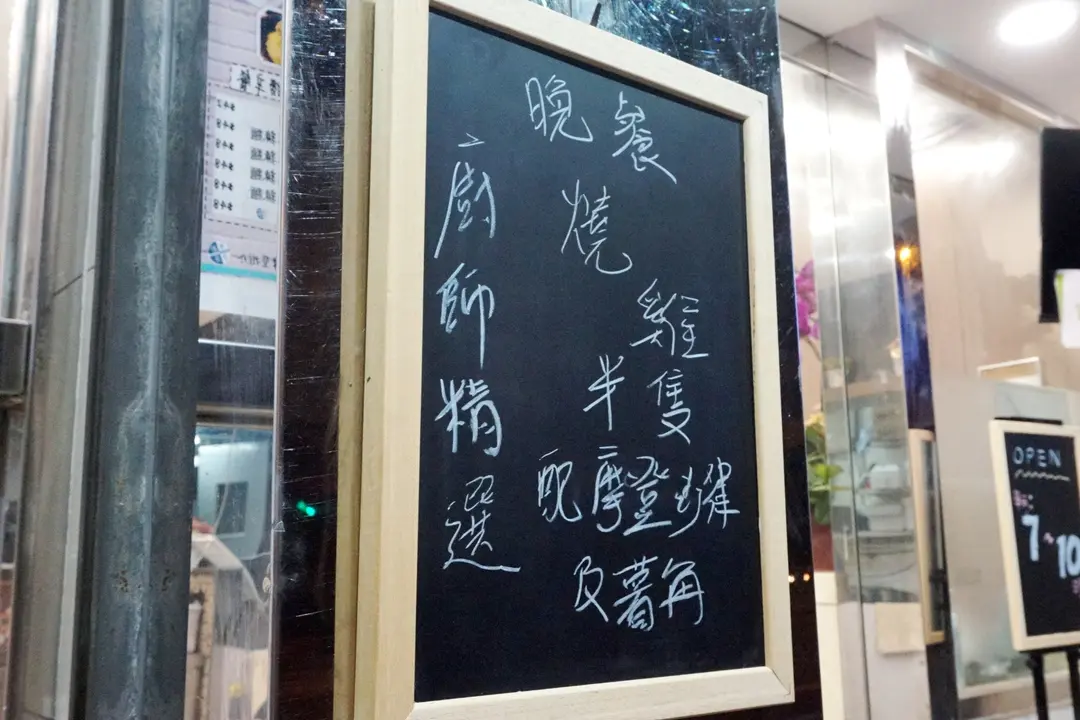 晚餐
燒
雞
半隻
配摩登
及薯角
廚師精選
OPEN
7
10